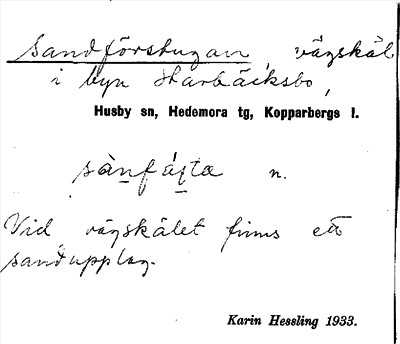 Sandförstugan, vägskäl
i byn Harbäcksbo,
Husby sn, Hedemora tg, Kopparbergs l.
n.
Vid vägskälet finns ett
sandupplag.
Karin Hessling 1933.